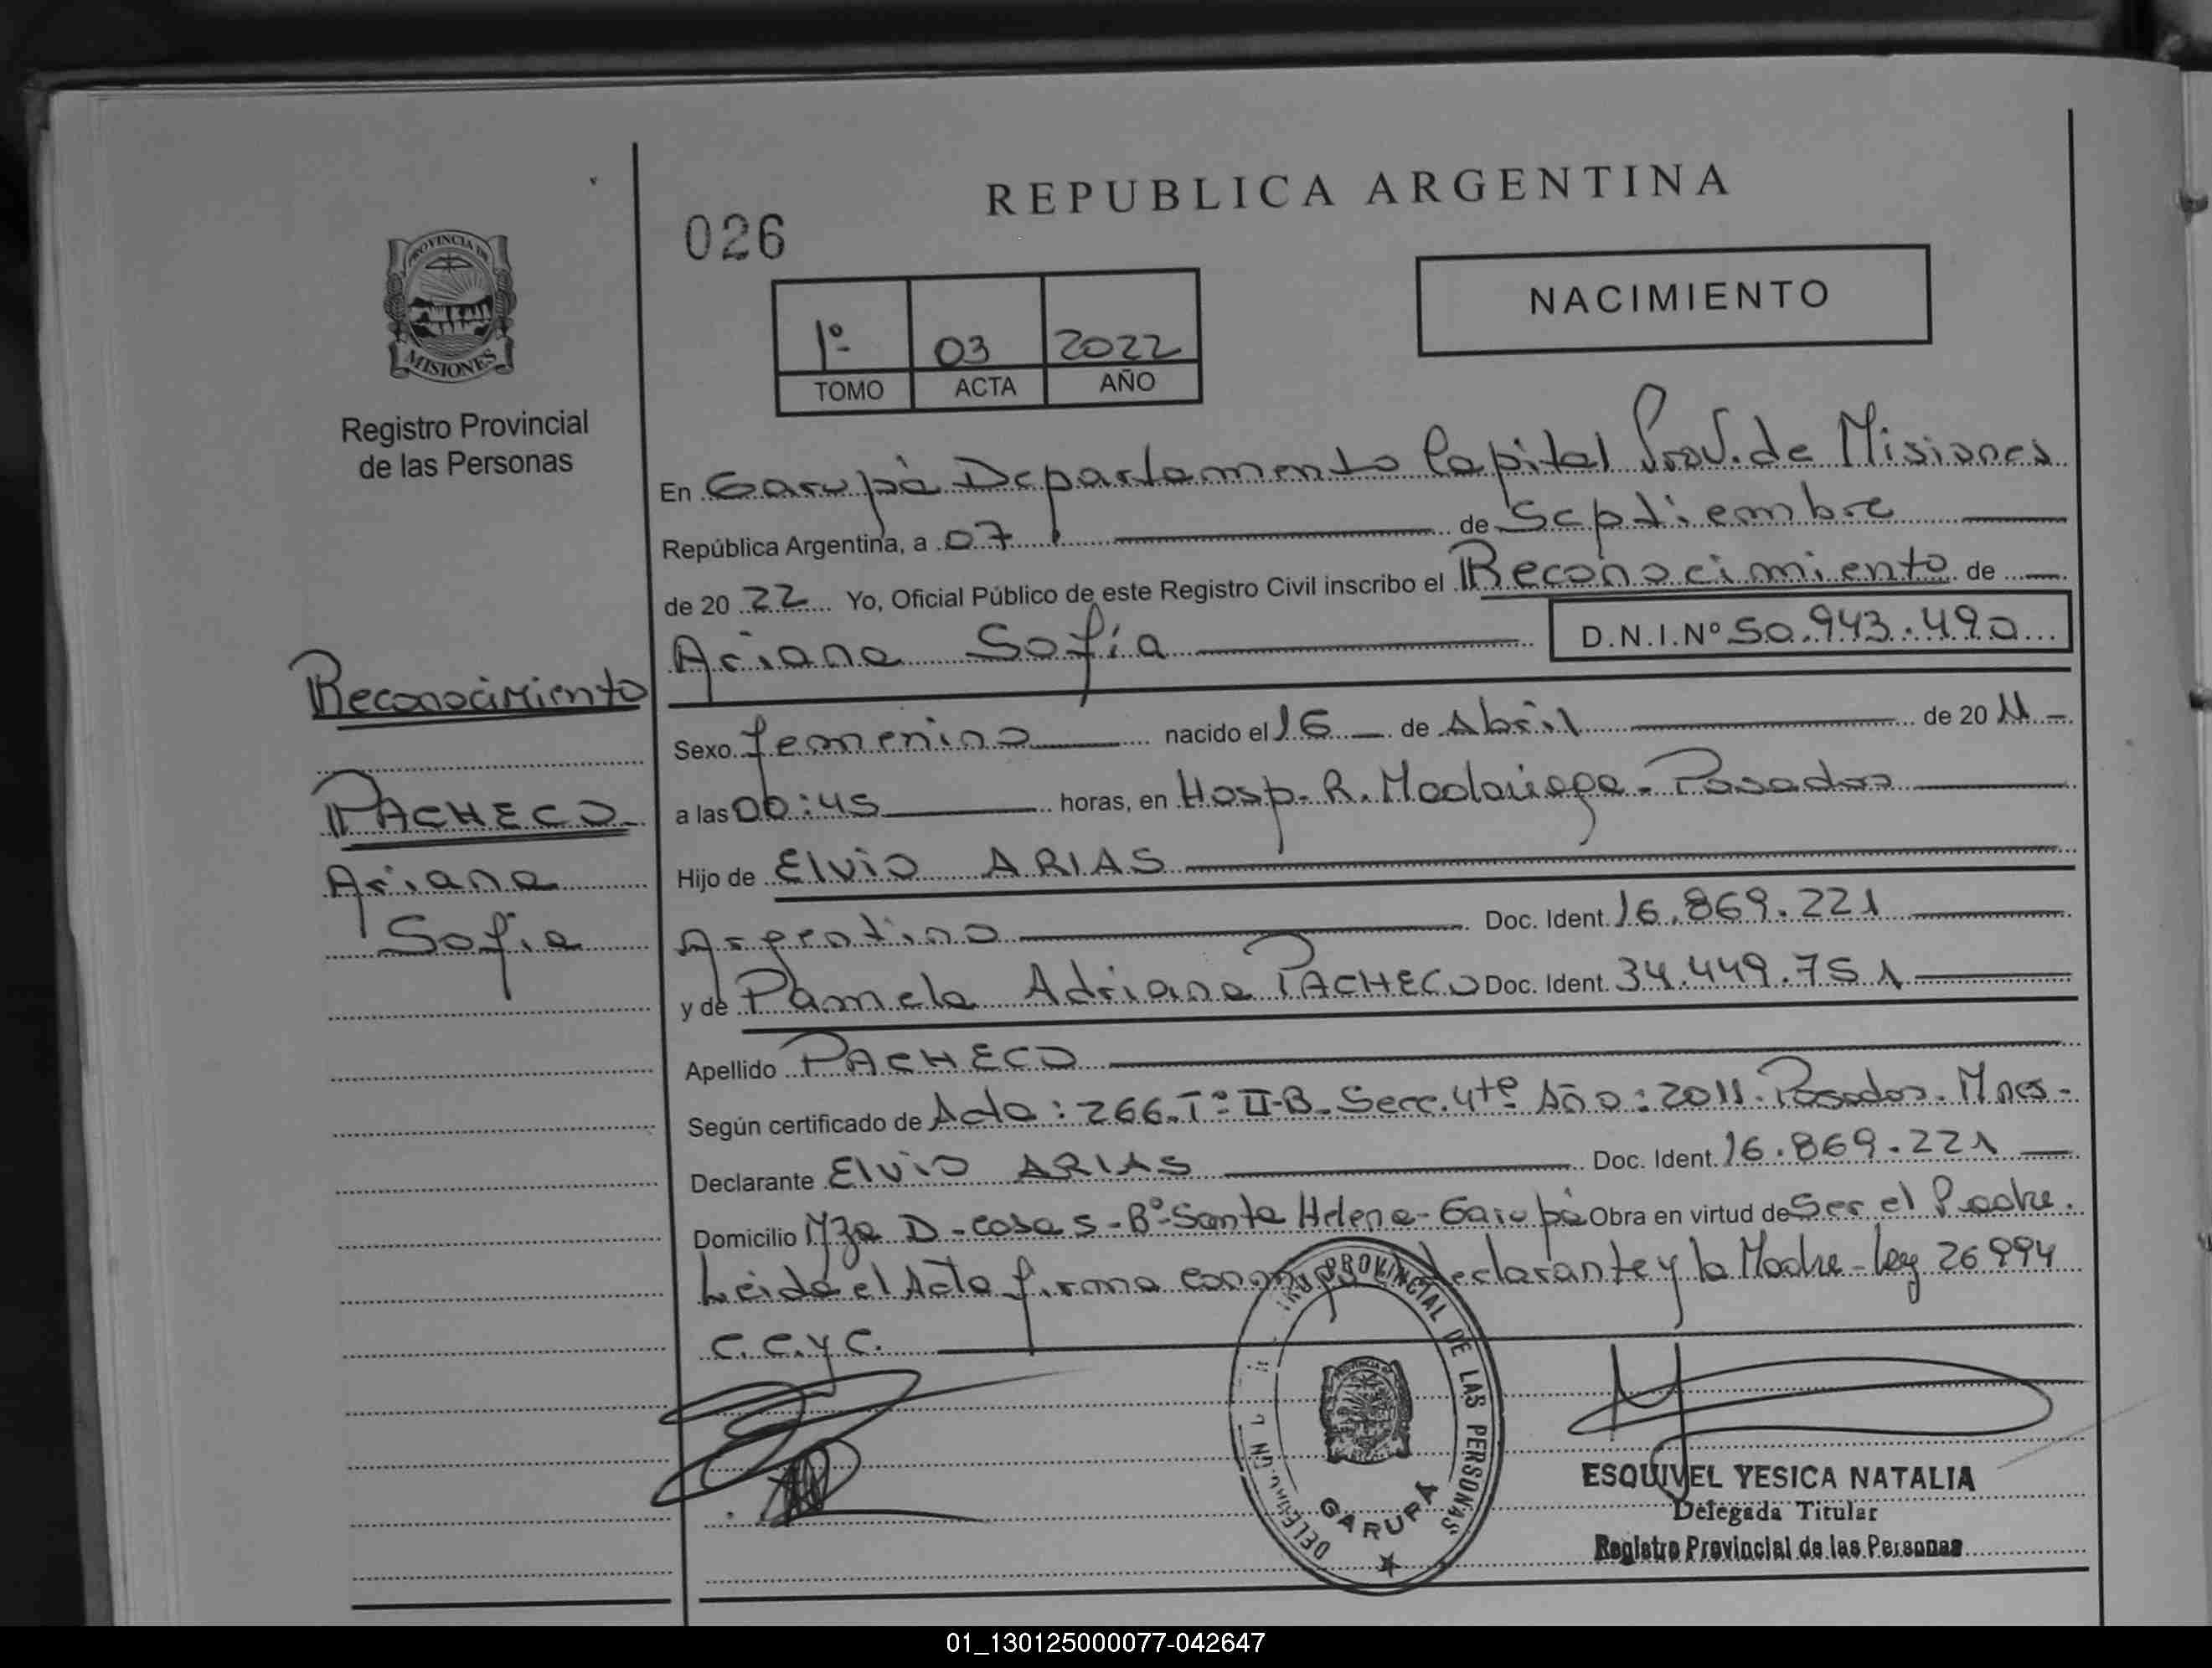 REPUBLICA ARGENTINA
026
NACIMIENTO
PROVINCIA DE
MISIONES
1º 03 2022
TOMO ACTA AÑO
Registro Provincial
de las Personas
En Garupá Departamento Capital Prov. de Misiones
República Argentina, a 07 de Septiembre
de 20 22 Yo, Oficial Público de este Registro Civil inscribo el Reconocimiento de
Ariana Sofía D.N.I.Nº 50.943.490
Reconocimiento
Sexo femenino nacido el 16 de Abril de 20 11
PACHECO
a las 00:45 horas, en Hosp. R. Madariaga - Posadas
Ariana
Hijo de Elvio ARIAS
Sofia
Argentino Doc. Ident. 16.869.221
y de Pamela Adriana PACHECO Doc. Ident. 34.449.751
Apellido PACHECO
Según certificado de Acta: 266. Tº II-B. Secc. 4ta Año: 2011. Posadas. Mnes.
Declarante Elvio ARIAS Doc. Ident. 16.869.221
Domicilio Mza D - casa 5 - Bº Santa Helena - Garupá Obra en virtud de Ser el Padre.
Leida el Acta firma conmigo declarante y la Madre - Ley 26994
C.C.y C.
PROVINCIAL DE LAS PERSONAS
GARUPÁ
ESQUIVEL YESICA NATALIA
Delegada Titular
Registro Provincial de las Personas
01_130125000077-042647